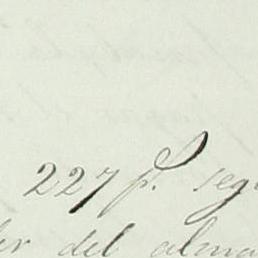 227 p.s seg
der del alma